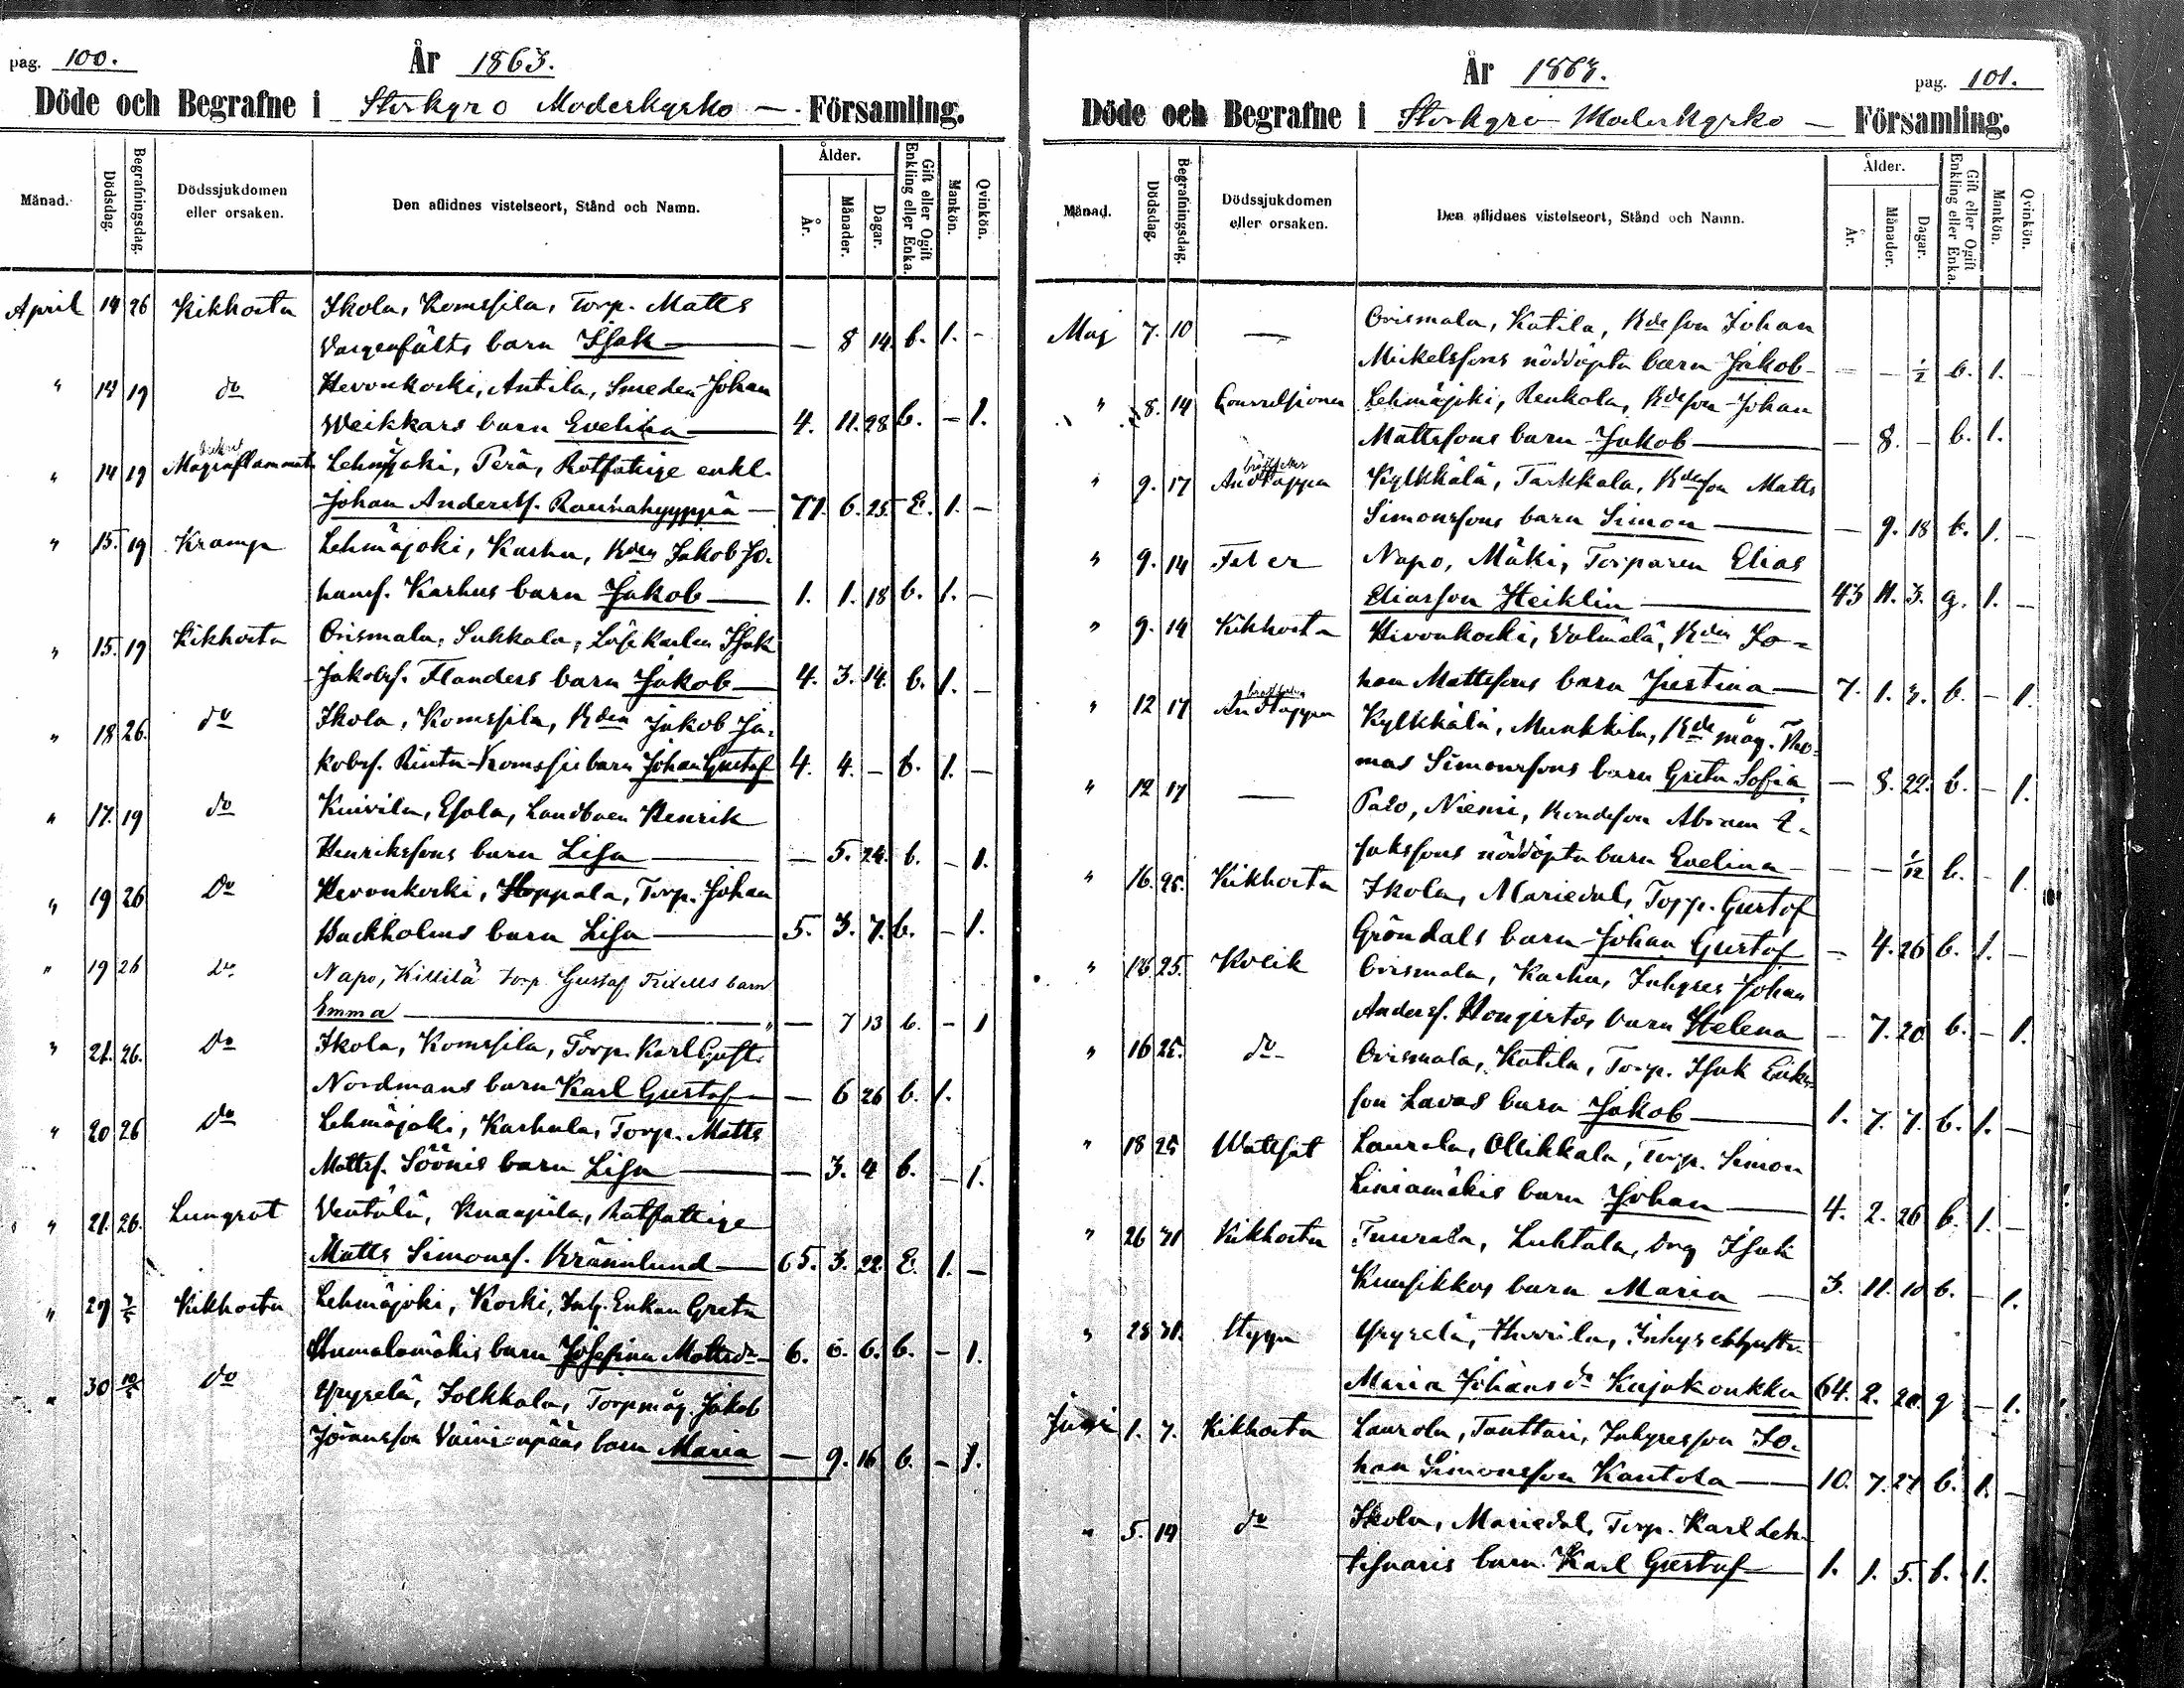 pag. 100.
År 1863.
Döde och Begrafne i Storkyro Moderkyrko — Församling.
Månad. Dödsdag. Begrafningsdag. Dödssjukdomen eller orsaken. Den aflidnes vistelseort, Stånd och Namn. Ålder. År. Månader. Dagar. Gift eller Ogift Enkling eller Enka. Mankön. Qvinkön.
April 14 26 Kikhosta Ikola, Komsila, Torp. Matts
Vargenfälts barn Isak — — 8 14. b. 1. -
" 14 19 do Hevonkoski, Antila, Smeden Johan
Weikkars barn Evelina — 4. 11. 28 b. - 1.
" 14 19 Maginflammat. Lehmäjoki, Perä, Rotfatige enkl.
Johan Andersf. Raunahyyppiä — 77. 6. 25. E. 1. —
" 15. 19 Kramp Lehmäjoki, Karhu, Bden Jakob Jo-
hansf. Karhus barn Jakob — 1. 1. 18 b. 1. —
" 15. 19 Kikhosta Orismala, Sukkala, Löskarlen Isak
Jakobsf. Flanders barn Jakob — 4. 3. 14. b. 1. —
" 18 26. do Ikola, Komsila, Bden Jakob Ja-
kobsf. Rinta-Komsis barn Johan Gustaf 4. 4. — b. 1. —
" 17. 19 do Kuivila, Esola, Landboen Henrik
Henrikssons barn Lisa — — 5. 24. b. - 1.
" 19 26 Do Hevonkoski, Hoppala, Torp. Johan
Backholms barn Lisa — 5. 3. 7. b. - 1.
" 19 26 Do Napo, Killilä torp. Gustaf Frixells barn
Emma — — 7 13 b. - 1
" 21. 26. Do Ikola, Komsila, Torp. Karl Gust.
Nordmans barn Karl Gustaf — — 6 26 b. 1.
" 20 26 Do Lehmäjoki, Karhula, Torp. Matts
Mattsf. Söönis barn Lisa — — 3. 4 b. - 1.
" 21. 26. Lungsot Wentälä, Knaapila, Rotfattige
Matts Simonsf. Brännlund — 65. 3. 22. E. 1. —
" 29 3/5 Kikhosta Lehmäjoki, Koski, Inh. Enkan Greta
Humalamäkis barn Josefina Mattsdr — 6. 6. 6. b. - 1.
" 30 10/5 do Yryselä, Jolkkala, Torpmåg. Jakob
Johansson Vainionpääs barn Maria — 9. 16 b. - 1.
År 1863.
pag. 101.
Döde och Begrafne i Storkyro Moderkyrko — Församling.
Månad. Dödsdag. Begrafningsdag. Dödssjukdomen eller orsaken. Den aflidnes vistelseort, Stånd och Namn. Ålder. År. Månader. Dagar. Gift eller Ogift Enkling eller Enka. Mankön. Qvinkön.
Maj 7. 10 — Orismala, Katila, Bdeson Johan
Mickelssons nöddöpta barn Jakob — — — 1/2 b. 1. -
" 8. 14 Convulsioner Lehmäjoki, Renkola, Bdeson Johan
Mattssons barn Jakob — — 8. - b. 1.
" 9. 17 Andtäppa Kylkkälä, Tarkkala, Bdeson Matts
Simonssons barn Simon — — 9. 18 b. 1. —
" 9. 14 Feber Napo, Mäki, Torparen Elias
Eliasson Heiklin — 43 11. 3. g. 1. —
" 9. 14 Kikhosta Hevonkoski, Bden Jo-
han Mattssons barn Justina — 7. 1. 3. b. - 1.
" 12 17 Andtäppa Kylkkälä, Munkkila, Bde måg. Tho-
mas Simonssons barn Greta Sofia — 8. 22. b. - 1.
" 12 17 — Palo, Niemi, Bondeson Abram I-
saksons nöddöpta barn Evelina — — — 1/12 b. - 1.
" 16. 25. Kikhosta Ikola, Mariedal, Torp. Gustaf
Gröndals barn Johan Gustaf — 4. 26 b. 1. —
" 16. 25. Kolik Orismala, Karhu, Inhyses Johan
Andersf. Hongistos barn Helena — 7. 20 b. - 1.
" 16 25. do Orismala, Katila, Torp. Isak Eriks-
son Lavas barn Jakob — 1. 7. 7. b. 1. —
" 18 25 Wattsot Laurola, Ollikkala, Torp. Simon
Liniamäkis barn Johan — 4. 2. 26 b. 1. —
" 26 31 Kikhosta Tuurala, Luhtala, Drg Isak
Kuusikkos barn Maria — 3. 11. 10 b. - 1.
" 28 31. Yryselä, Huvila, Inhyseshustr.
Maria Johansdr Kujakoukku 64. 2. 20. g - 1.
Juni 1. 7. Kikhosta Laurola, Tanttari, Inhysesson Jo-
han Simonsson Kantola — 10. 7. 27 b. 1. —
" 5. 14 do Ikola, Mariedal, Torp. Karl Leh-
tisaaris barn Karl Gustaf — 1. 1. 5. b. 1.